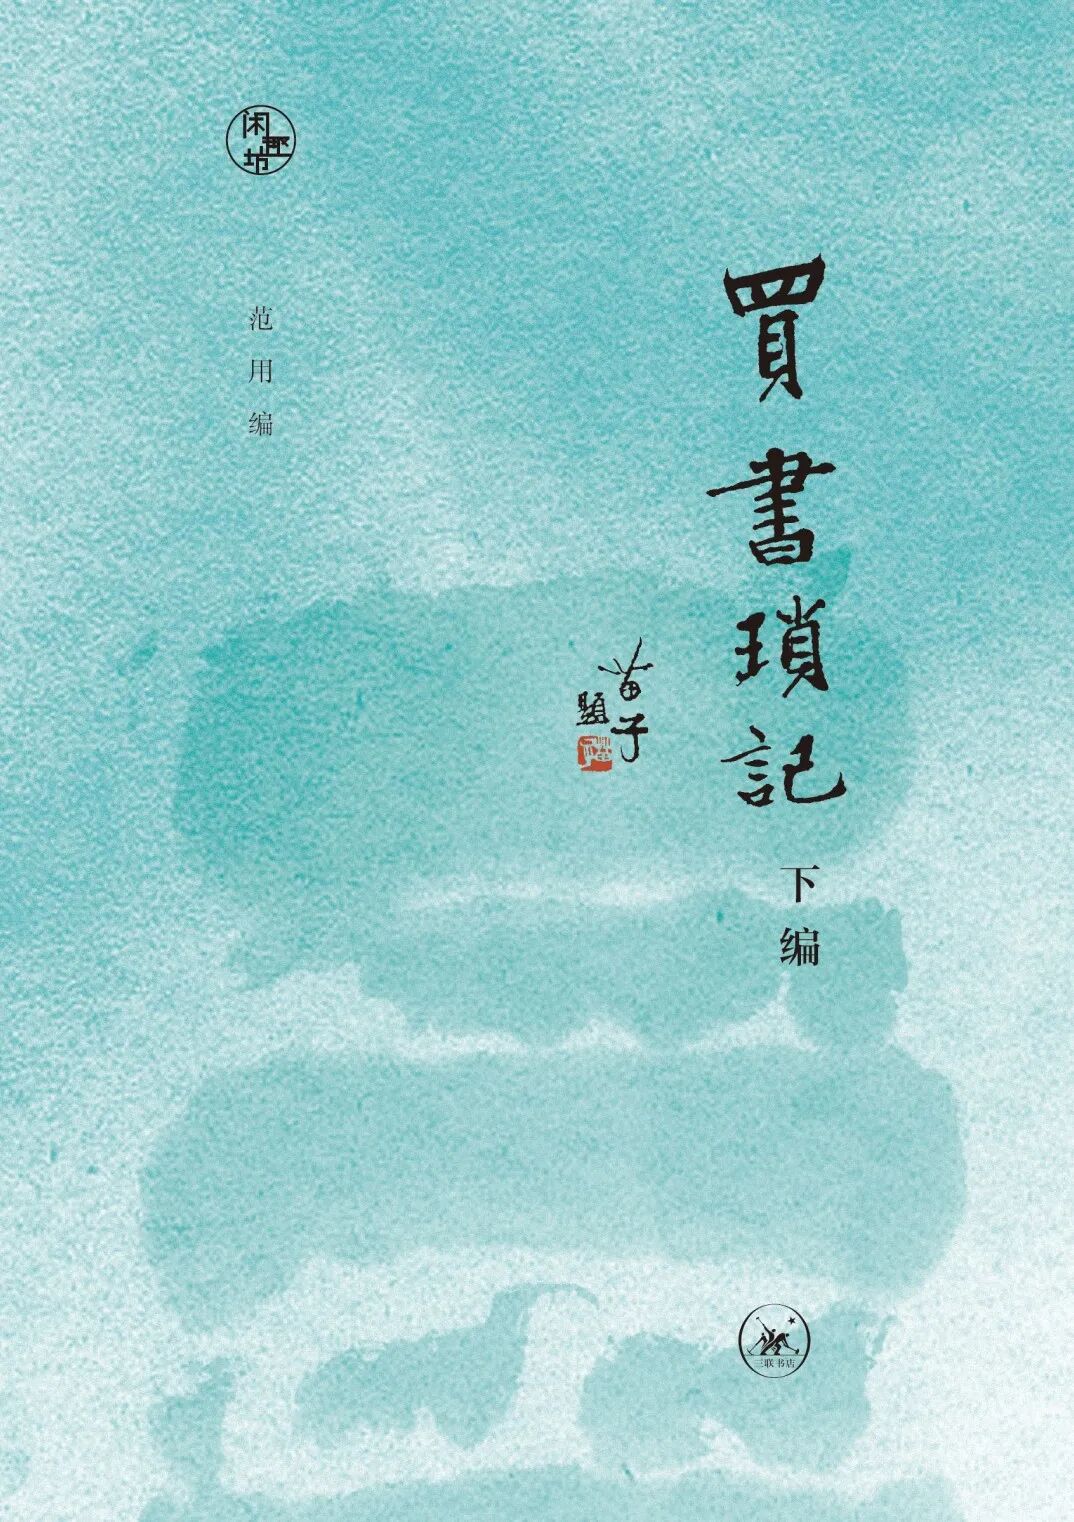 闲趣坊
范用编
買書瑣記
下编
苗子
題
三联书店